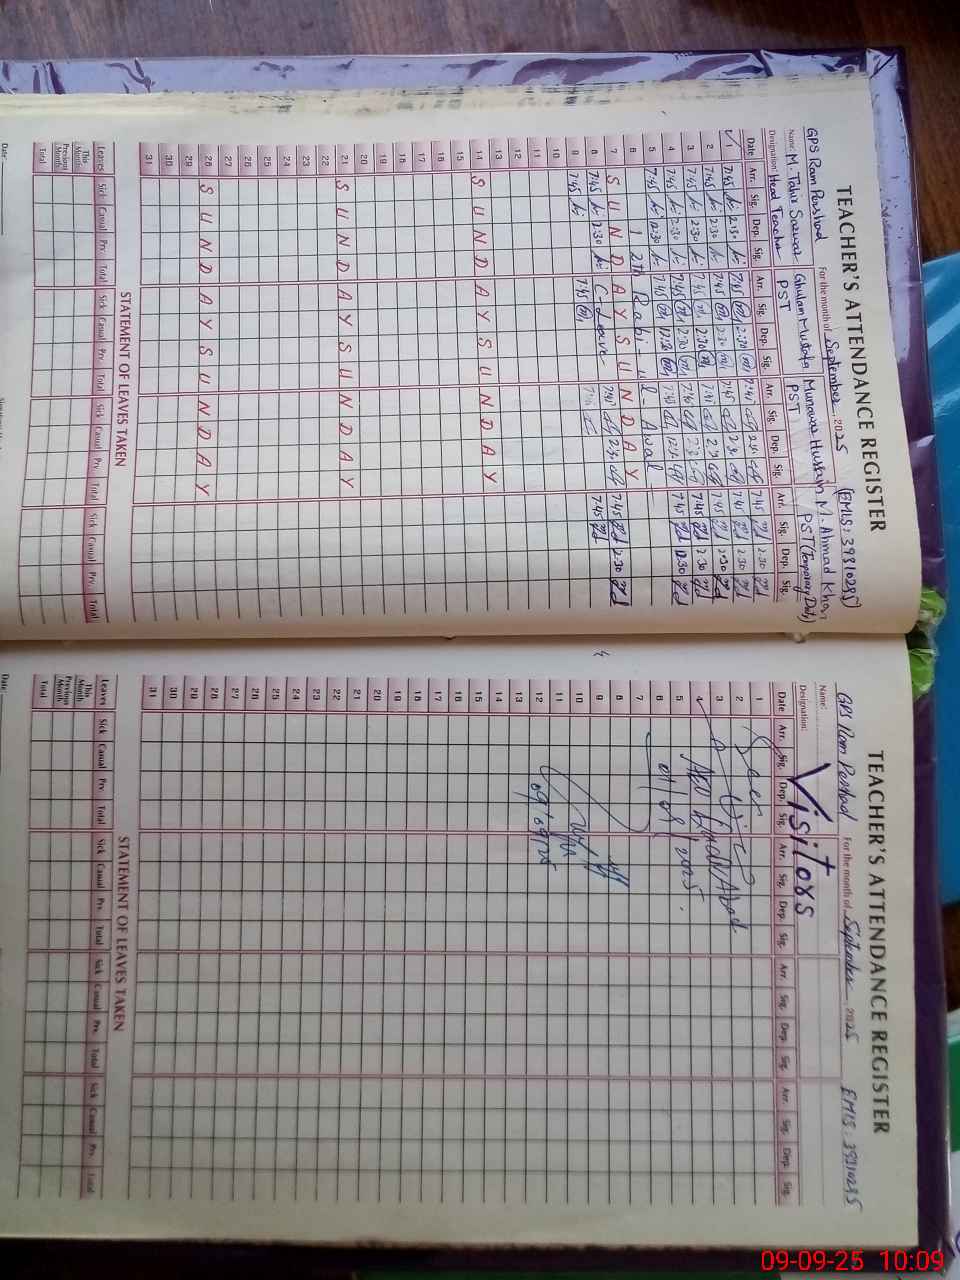 TEACHER'S ATTENDANCE REGISTER
GPS Ram Pershad For the month of September 2025 (EMIS: 39310285)
Name: M. Tahir Sarwar Ghulam Mustafa Munawar Hussain M. Ahmad Khan
Designation: Head Teacher PST PST PST (Temporary Duty)
Date Arr. Sig. Dep. Sig. Arr. Sig. Dep. Sig. Arr. Sig. Dep. Sig. Arr. Sig. Dep. Sig.
1 7:45 2:30 7:45 2:30 7:45 2:30
2 7:45 2:30 7:45 2:30 7:45 2:30 7:45 2:30
3 7:45 2:30 7:45 2:30 7:45 2:30
4 7:45 2:30 7:45 2:30 7:45 2:30
5 7:45 12:30 7:45 12:30 7:45 7:45 12:30
6 12th Rabi-ul-Awal
7 SUNDAY SUNDAY
8 7:45 2:30 C-Leave 7:45 2:30
9 7:45 7:45 7:45
10
11
12
13
14 SUNDAY SUNDAY
15
16
17
18
19
20
21 SUNDAY SUNDAY
22
23
24
25
26
27
28 SUNDAY SUNDAY
29
30
31
STATEMENT OF LEAVES TAKEN
Leaves Sick Casual Prv. Total Sick Casual Prv. Total Sick Casual Prv. Total Sick Casual Prv. Total
This Month
Previous Month
Total
Date:
TEACHER'S ATTENDANCE REGISTER
GPS Ram Pershad For the month of September 2025 EMIS: 39310285
Name:
Visitors
Designation:
Date Arr. Sig. Dep. Sig. Arr. Sig. Dep. Sig. Arr. Sig. Dep. Sig. Arr. Sig. Dep. Sig.
1
2 Seen
3
4
5
6 01/09/2025
7
8
9
10
11
12 09/09/25
13
14
15
16
17
18
19
20
21
22
23
24
25
26
27
28
29
30
31
STATEMENT OF LEAVES TAKEN
Leaves Sick Casual Prv. Total Sick Casual Prv. Total Sick Casual Prv. Total Sick Casual Prv. Total
This Month
Previous Month
Total
Date:
09-09-25 10:09